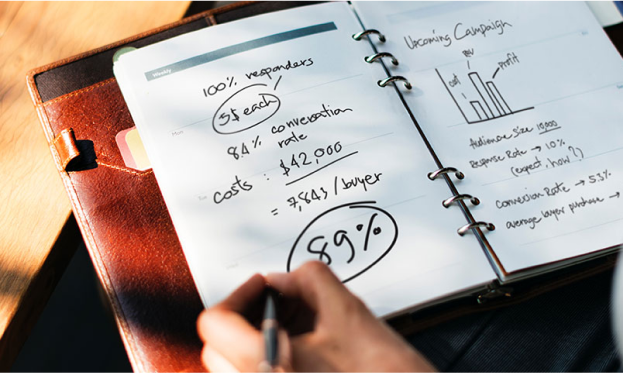 Weekly
100% responders
5$ each
8.4% conversation
rate
costs : $42,000
= 7,843/buyer
89%
Upcoming Campaign
cost
rev
profit
Audience size 10,000
Response Rate → 10%
(expect, how?)
Conversion Rate → 5.3%
average buyer purchase →